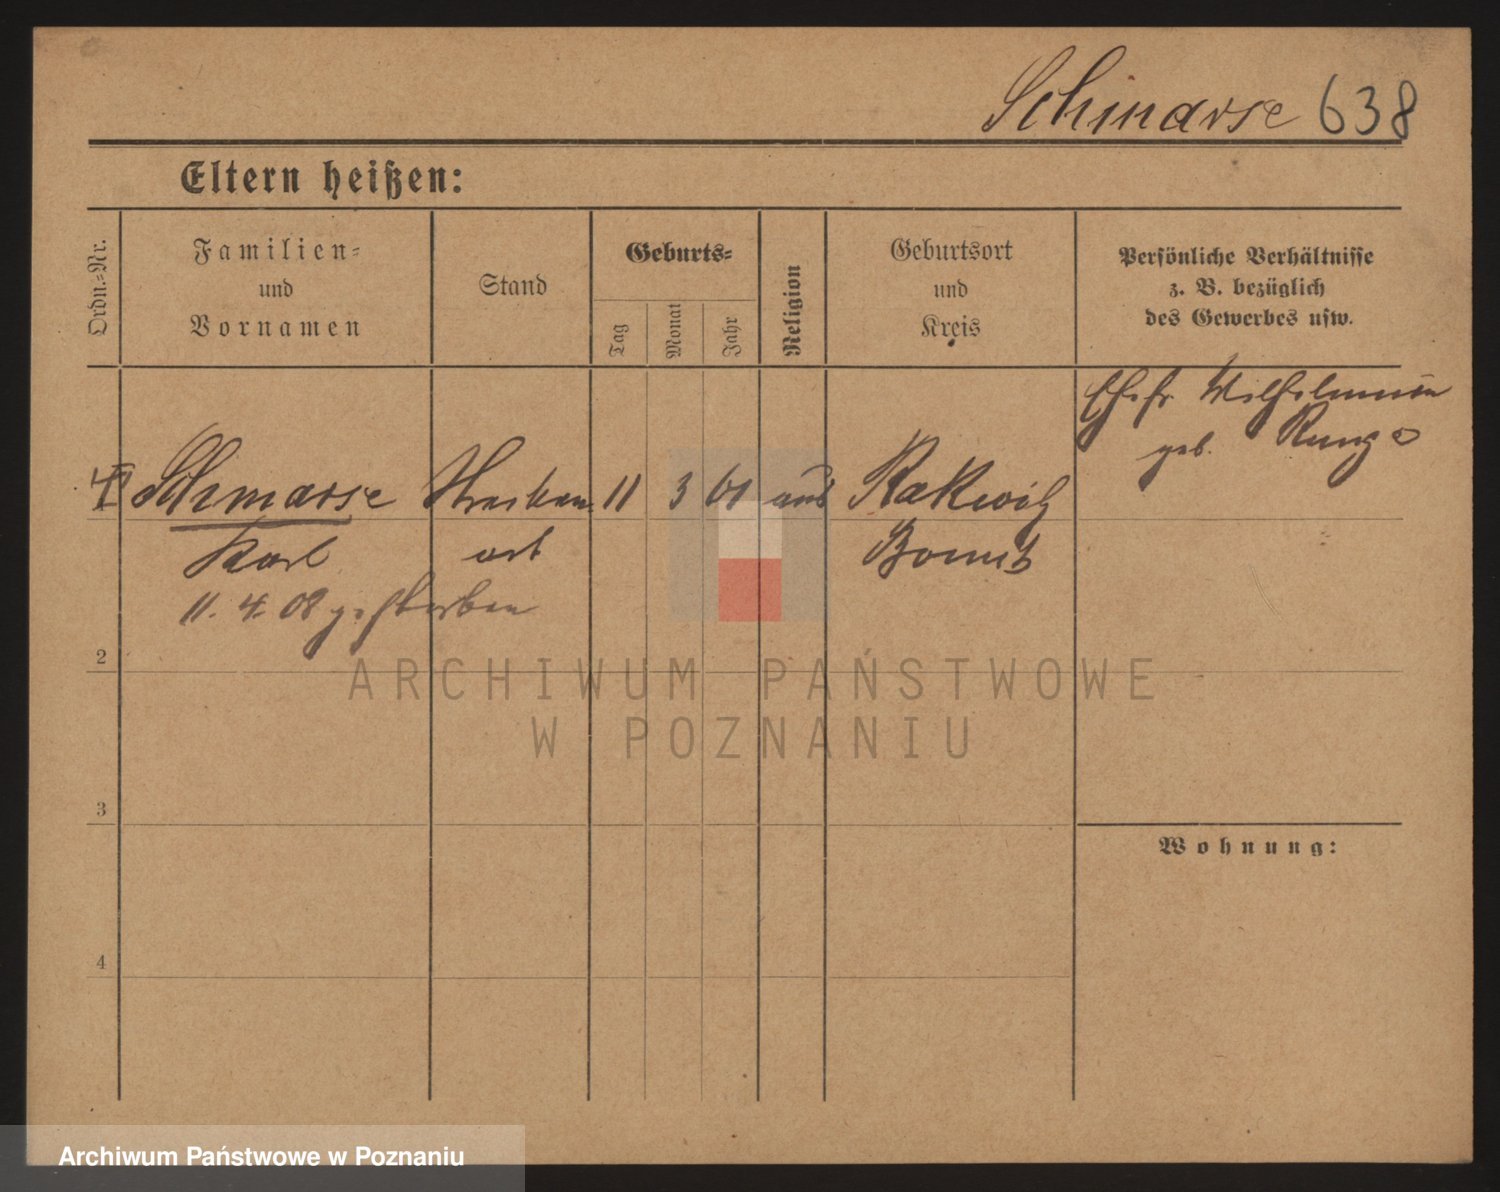 Schmarse 638
Eltern heißen:
Ordn.-Nr.
Familien-
und
Vornamen
Stand
Geburts-
Tag
Monat
Jahr
Religion
Geburtsort
und
Kreis
Persönliche Verhältnisse
z. B. bezüglich
des Gewerbes usw.
Ehefr Wilhelmine
geb. Runge
1 Schmarse 11 3 61 Rakwitz
Karl Bomst
11. 4. 08 gestorben
2
3
4
Wohnung:
ARCHIWUM PAŃSTWOWE
W POZNANIU
Archiwum Państwowe w Poznaniu